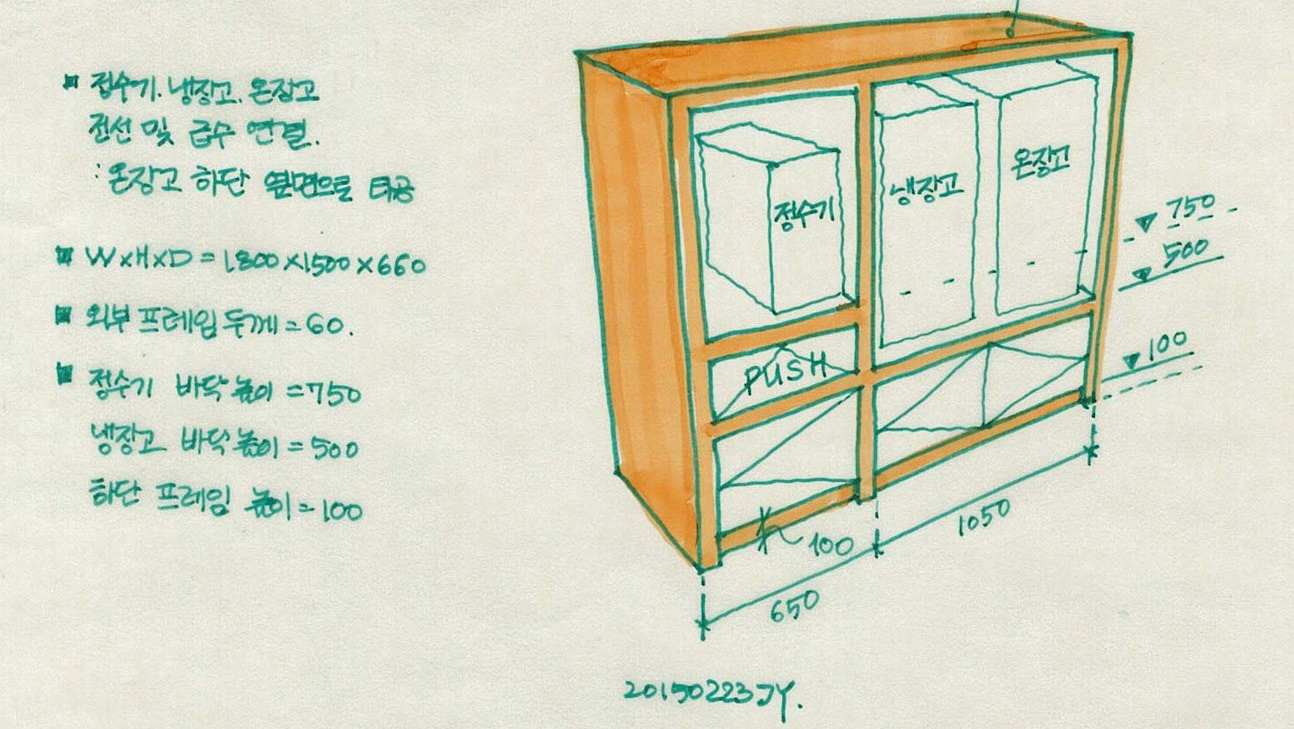 ▪ 정수기. 냉장고. 온장고
전선 및 급수 연결.
: 온장고 하단 옆면으로 타공
▪ W×H×D = 1,800×1500×660
▪ 외부 프레임 두께 = 60.
▪ 정수기 바닥높이 = 750
냉장고 바닥높이 = 500
하단 프레임 높이 = 100
정수기
냉장고
온장고
PUSH
750
500
100
100
1050
650
20150223 JY.